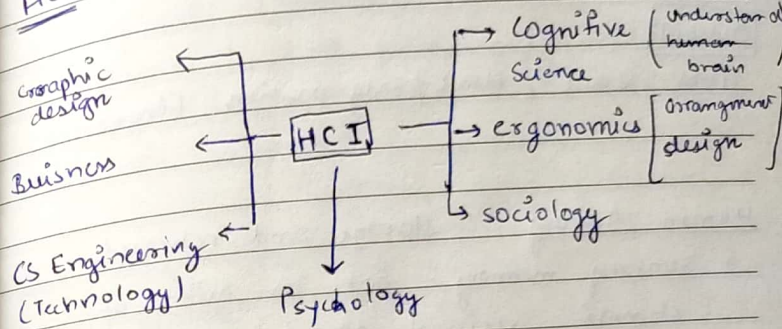 HCI
Graphic
design
Buisness
CS Engineering
(Technology)
HCI
Psychology
Cognitive
Science
(understand
human
brain)
ergonomics
[arrangment
design]
sociology